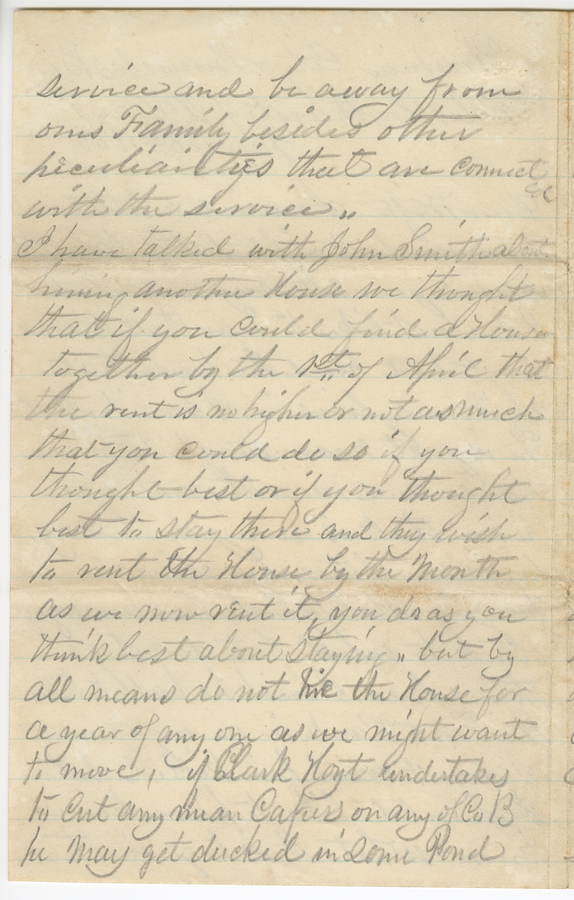 service and be away from
ones Family besides other
peculiairties that are connect
ed
with the service,,
I have talked with John Smith about
hiring another House we thought
that if you could find a House
together by the 1st of April that
the rent is no higher or not as much
that you could do so if you
thought best or if you thought
best to stay there and they wish
to rent the House by the Month
as we now rent it, you do as you
think best about staying,, but by
all means do not hire the House for
a year of any one as we might want
to move, if Clark Hoyt undertakes
to cut any mean Capers on any of Co B
he May get ducked in some Pond